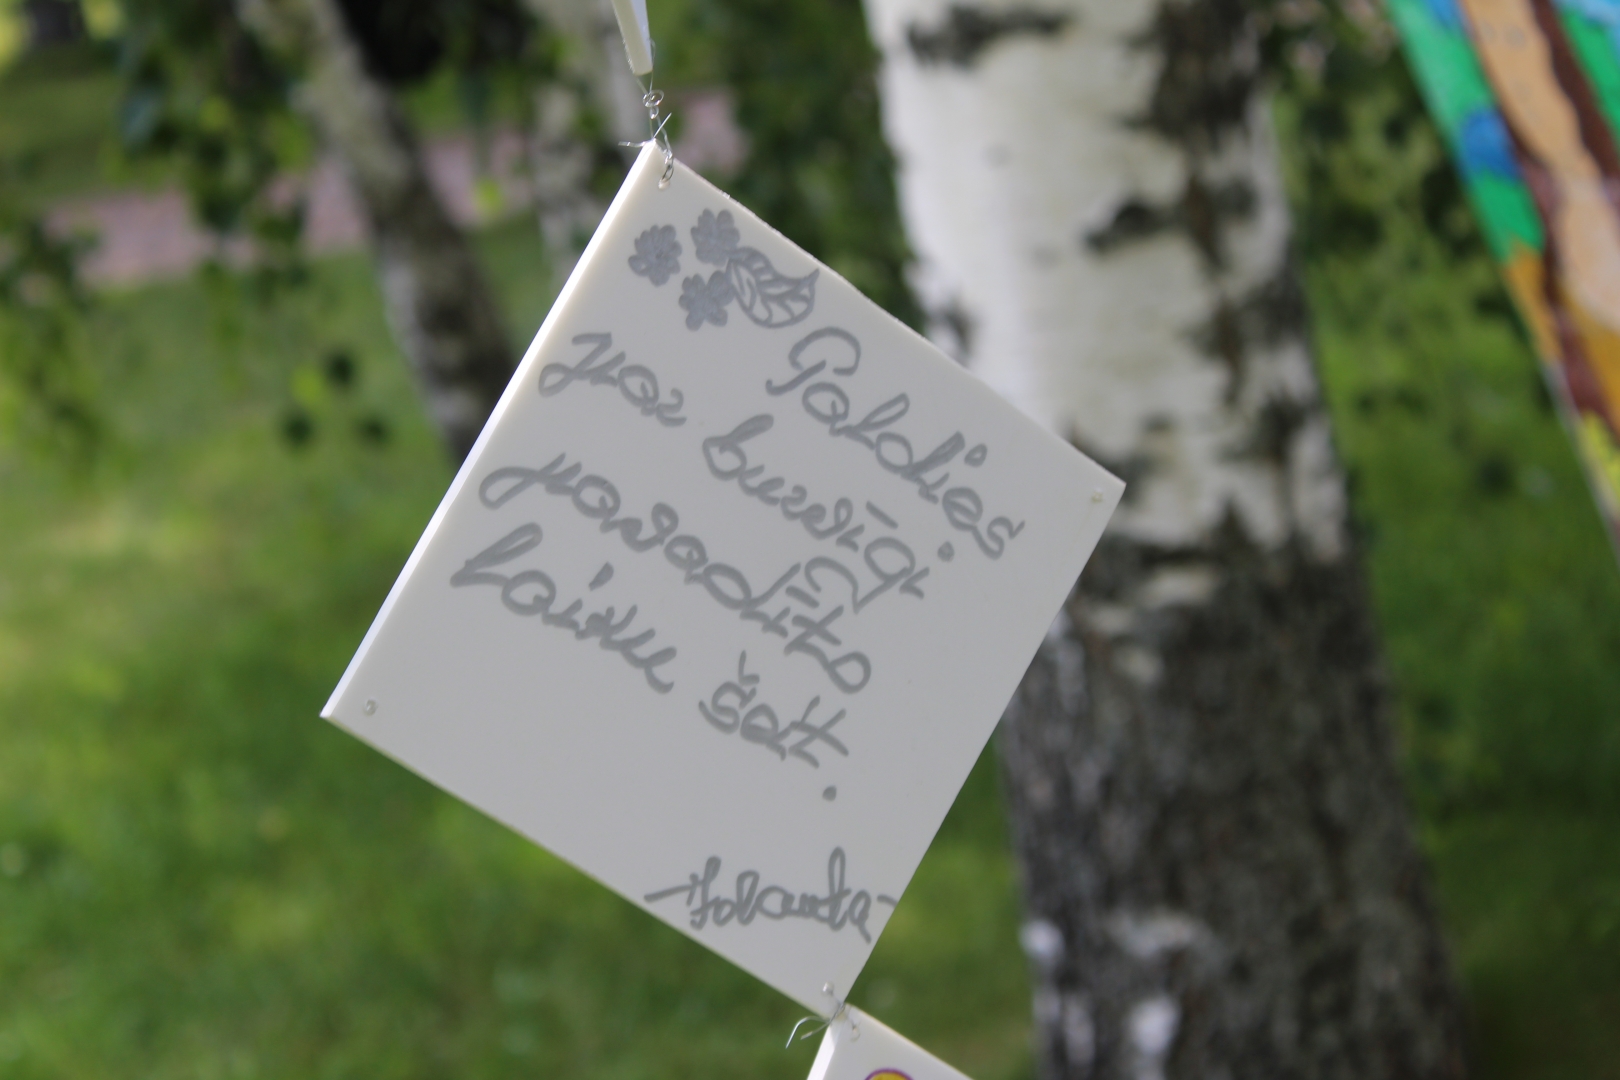 Paldies
par burvīgi
pavadīto
laiku šeit.
Jolanta